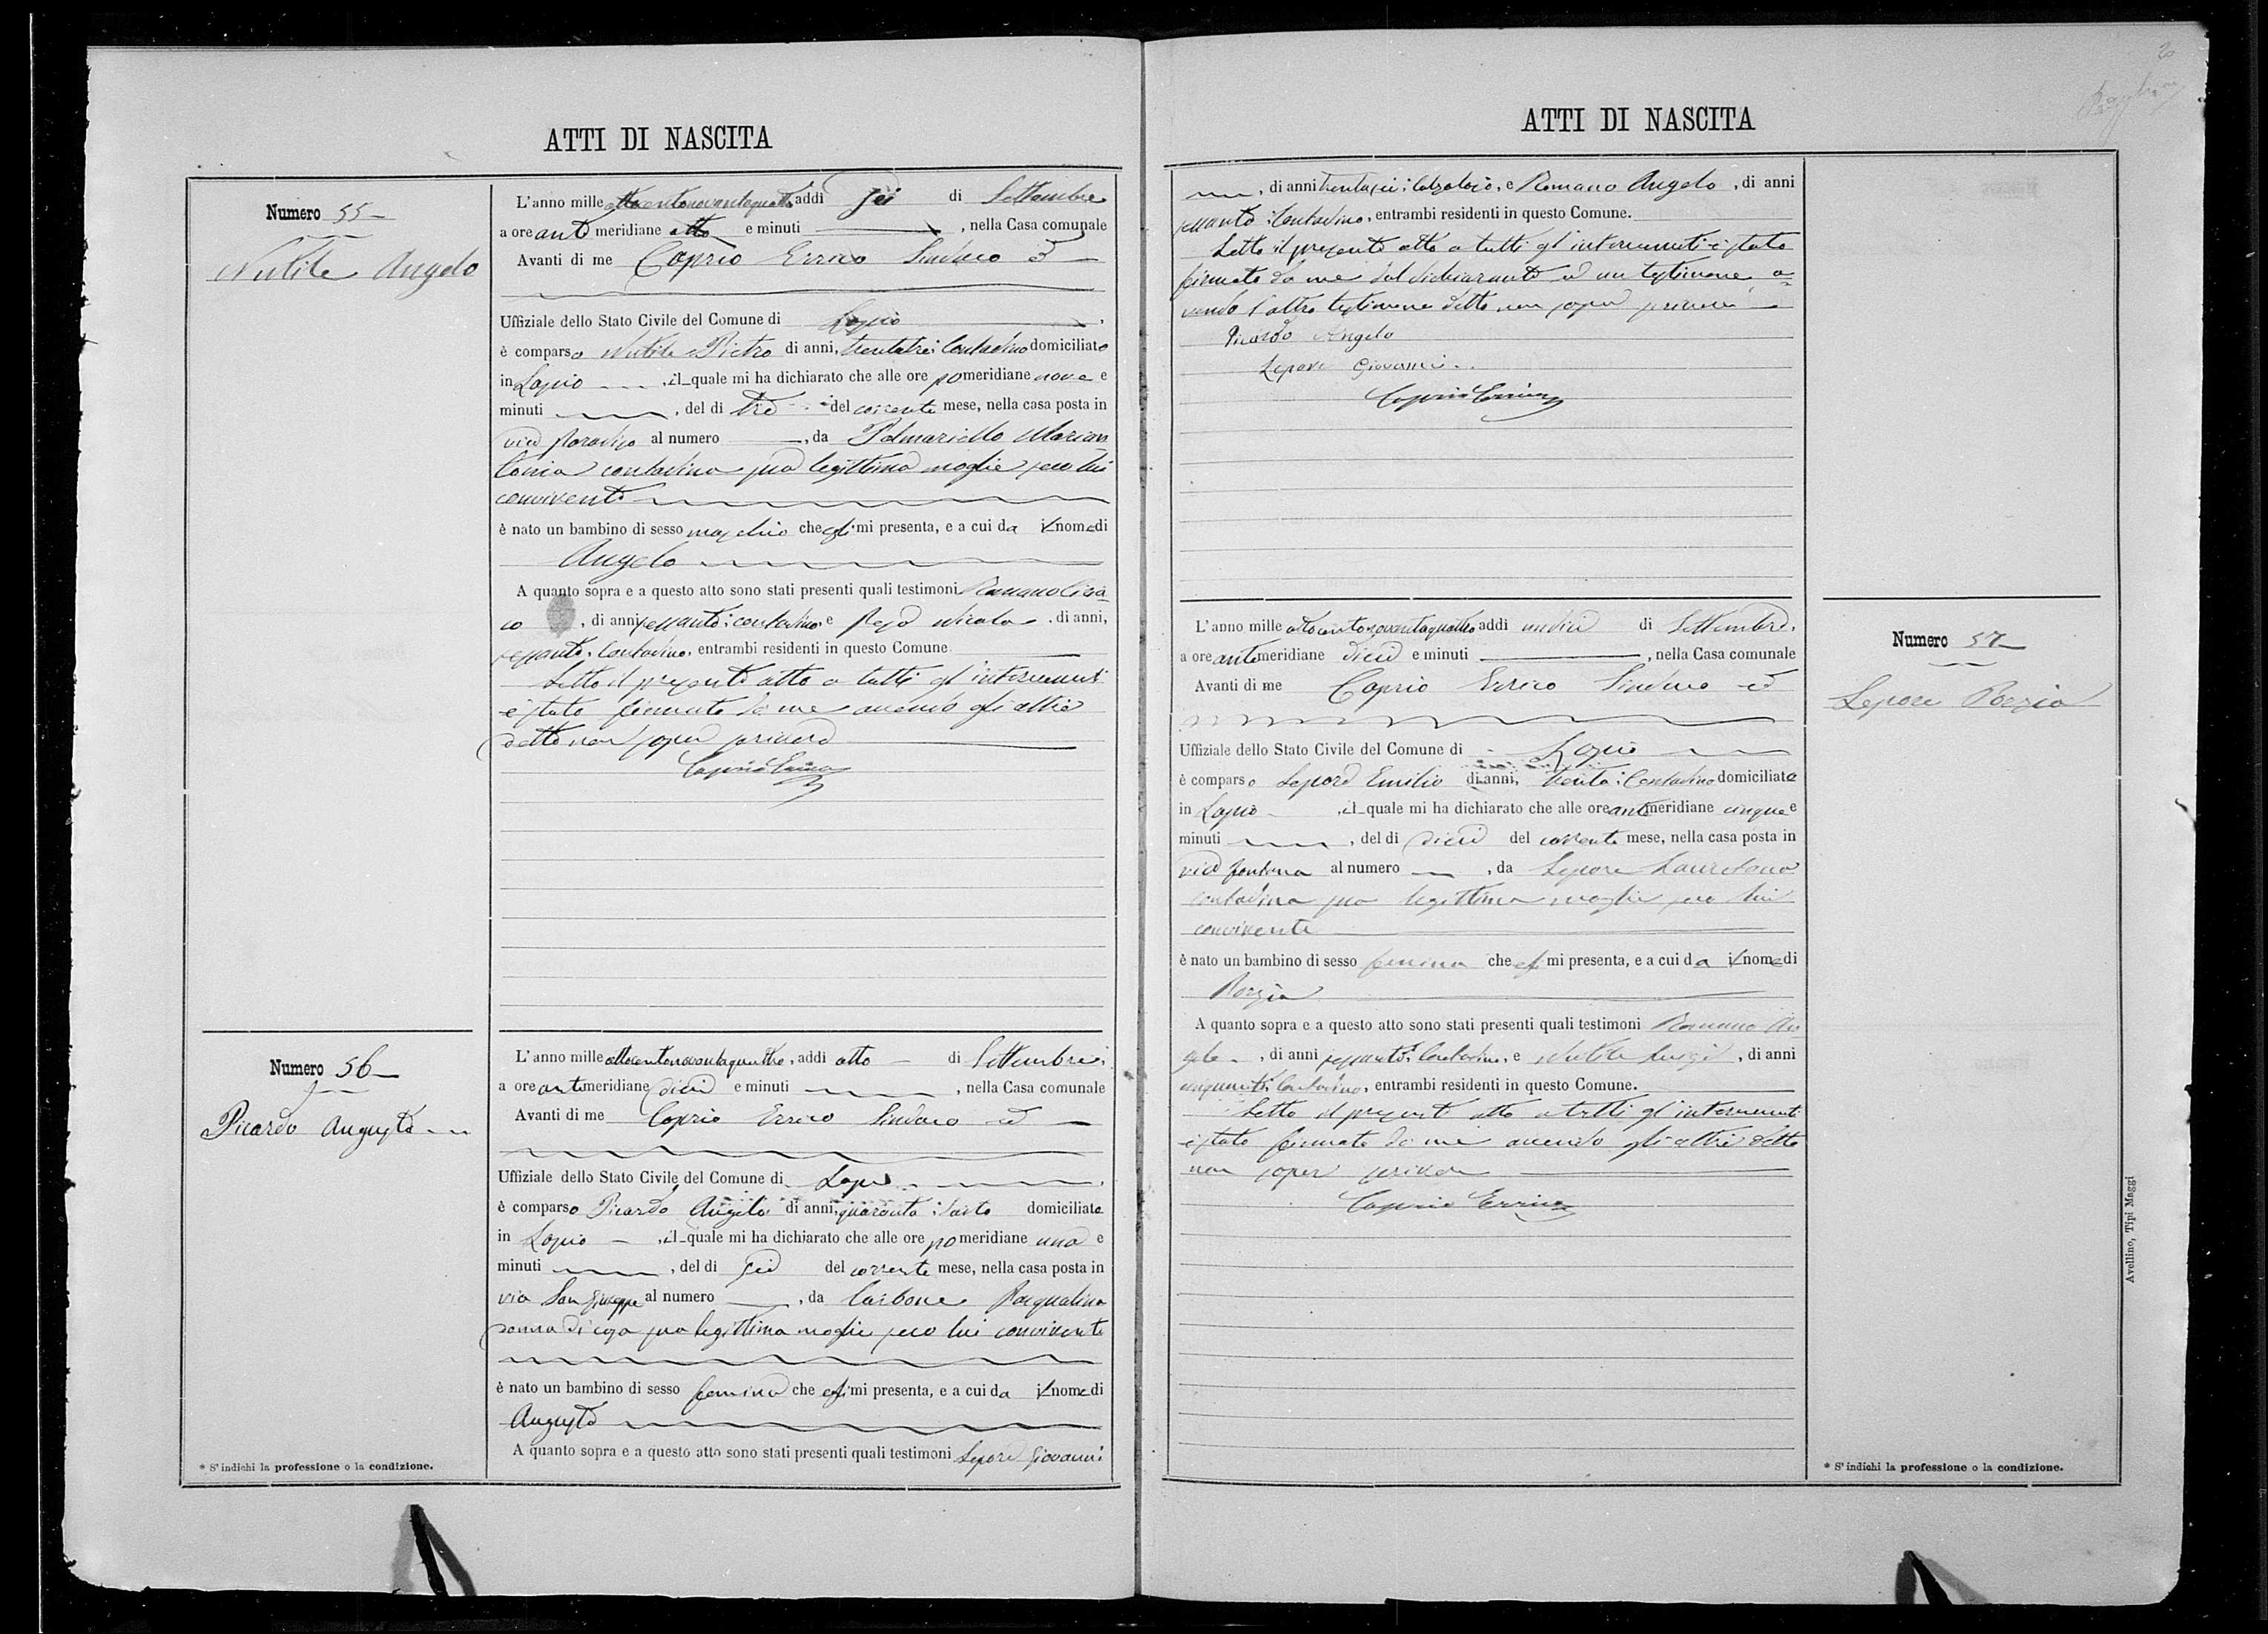 ATTI DI NASCITA
Numero 55
Nutile Angelo
L'anno mille ottocentonovantaquattro addì sei di Settembre
a ore anti meridiane otto e minuti , nella Casa comunale
Avanti di me Caprio Errico Sindaco ed
Uffiziale dello Stato Civile del Comune di Lapio
è comparso Nutile Pietro di anni, trentatre: Contadino domiciliato
in Lapio , il quale mi ha dichiarato che alle ore pomeridiane nove e
minuti , del dì tre del corrente mese, nella casa posta in
vico Paradiso al numero , da Palmariello Marian
tonia contadina sua legittima moglie seco lui
convivente
è nato un bambino di sesso maschio che egli mi presenta, e a cui da il nome di
Angelo
A quanto sopra e a questo atto sono stati presenti quali testimoni Romano Ciria-
co , di anni sessanta: contadino e Nicola , di anni,
sessanta, Contadino, entrambi residenti in questo Comune
Letto il presente atto a tutti gl'intervenuti
è stato firmato da me avendo gli altri
detto non saper scrivere
Caprio Errico
Numero 56
Picardo Augusta
L'anno mille ottocentonovantaquattro, addì otto di Settembre
a ore antimeridiane dieci e minuti , nella Casa comunale
Avanti di me Caprio Errico Sindaco ed
Uffiziale dello Stato Civile del Comune di Lapio
è comparso Picardo Angelo di anni, quaranta: Sarto domiciliato
in Lapio , il quale mi ha dichiarato che alle ore pomeridiane una e
minuti , del dì sei del corrente mese, nella casa posta in
via San Giuseppe al numero , da Carbone Pasqualina
donna di casa sua legittima moglie seco lui convivente
è nato un bambino di sesso femina che egli mi presenta, e a cui da il nome di
Augusta
A quanto sopra e a questo atto sono stati presenti quali testimoni Lepore Giovanni
* S'indichi la professione o la condizione.
ATTI DI NASCITA
, di anni trentasei: Calzolaio, e Romano Angelo, di anni
sessanta: Contadino, entrambi residenti in questo Comune.
Letto il presente atto a tutti gl'intervenuti è stato
firmato da me dal dichiarante ed un testimone a-
vendo l'altro testimone detto non saper scrivere
Picardo Angelo
Lepore Giovanni
Caprio Errico
L'anno mille ottocentonovantaquattro addì undici di Settembre,
a ore antimeridiane dieci e minuti , nella Casa comunale
Avanti di me Caprio Errico Sindaco ed
Uffiziale dello Stato Civile del Comune di Lapio
è comparso Lepore Emilio di anni, trenta: Contadino domiciliato
in Lapio , il quale mi ha dichiarato che alle ore antimeridiane cinque e
minuti , del dì dieci del corrente mese, nella casa posta in
vico fontana al numero , da Lepore Lauretana
contadina sua legittima moglie seco lui
convivente
è nato un bambino di sesso femina che egli mi presenta, e a cui da il nome di
Porzia
A quanto sopra e a questo atto sono stati presenti quali testimoni Romano An
gelo , di anni sessanta: Contadino, e Nutile Luigi, di anni
cinquanta: Contadino, entrambi residenti in questo Comune.
Letto il presente atto a tutti gl'intervenuti
è stato firmato da me avendo gli altri detto
non saper scrivere
Caprio Errico
Numero 57
Lepore Porzia
* S'indichi la professione o la condizione.
Avellino, Tipi Maggi